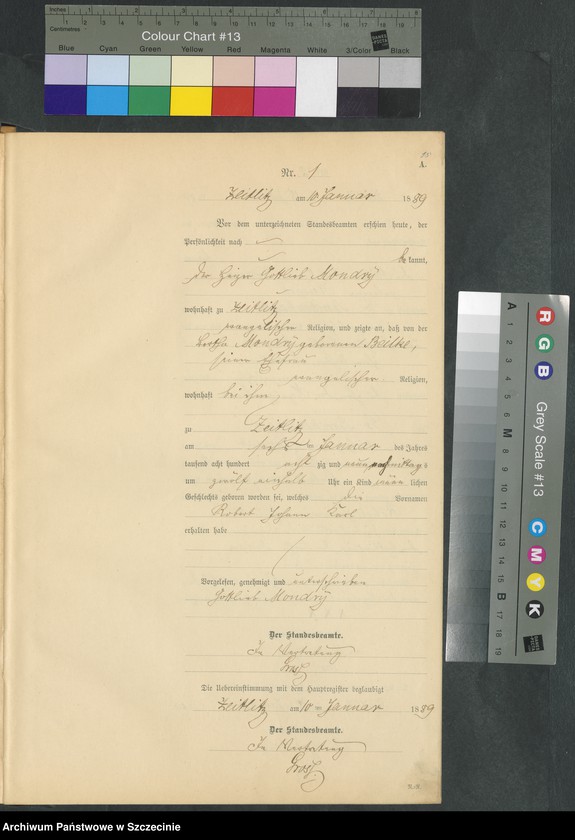 Inches
Centimetres
Colour Chart #13
Blue Cyan Green Yellow Red Magenta White 3/Color Black
A.
Nr. 1
Zeitlitz am 10 Januar 1889
Vor dem unterzeichneten Standesbeamten erschien heute, der
Persönlichkeit nach
be kannt,
der Gottlieb Mondry
wohnhaft zu Zeitlitz
evangelischer Religion, und zeigte an, daß von der
Bertha Mondry geborenen Beilke,
seiner Ehefrau
evangelischer Religion,
wohnhaft bei ihm
zu Zeitlitz
am sechs ten Januar des Jahres
tausend acht hundert acht zig und neun nachmittags
um zwölf einhalb Uhr ein Kind männ lichen
Geschlechts geboren worden sei, welches die Vornamen
Robert Johann Karl
erhalten habe
Vorgelesen, genehmigt und unterschrieben
Gottlieb Mondry
Der Standesbeamte.
In Vertretung
Die Uebereinstimmung mit dem Hauptregister beglaubigt
Zeitlitz am 10 ten Januar 1889
Der Standesbeamte.
In Vertretung
Grey Scale #13
R G B
C M Y K
A 1 2 3 4 5 6 M 8 9 10 11 12 13 14 15 B 17 18 19
Archiwum Państwowe w Szczecinie